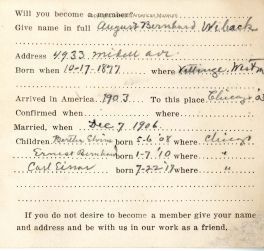 Will you become a member?
Give name in full August Bernhard
Address 4933
Born when 10-17-1877 where
Arrived in America. 1903 To this place Chicago
Confirmed when where
Married, when Dec 7 1906
Children born 5-6'08 where Chicago
Ernest Bernhard 1-7'10 where "
Carl Einar 7-22-17 where "
If you do not desire to become a member give your name
and address and be with us in our work as a friend.